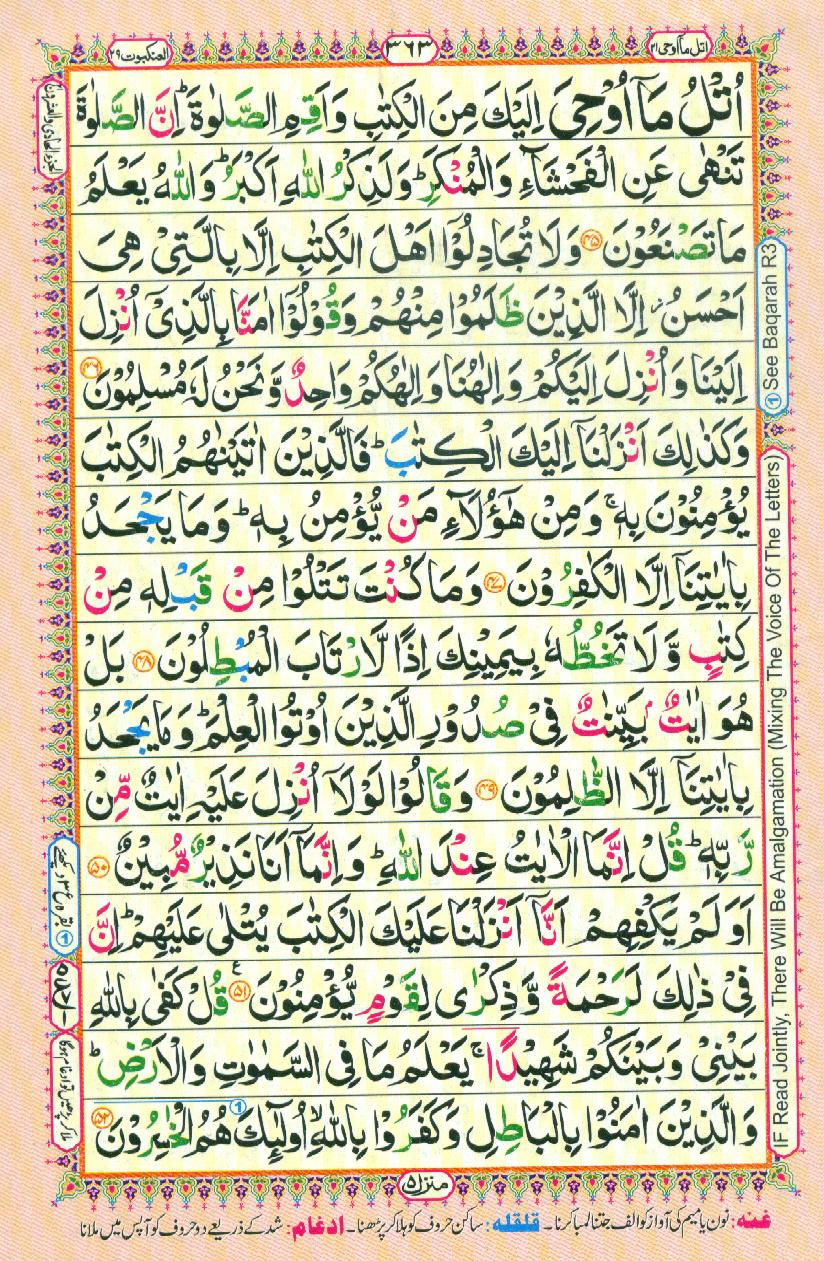 اتل ما اوحی ۲۱
۳۶۳
العنکبوت ۲۹
اُتْلُ مَاۤ اُوْحِیَ اِلَیْكَ مِنَ الْكِتٰبِ وَاَقِمِ الصَّلٰوةَ ؕ اِنَّ الصَّلٰوةَ
تَنْهٰى عَنِ الْفَحْشَآءِ وَالْمُنْكَرِ ؕ وَلَذِكْرُ اللّٰهِ اَكْبَرُ ؕ وَاللّٰهُ یَعْلَمُ
مَا تَصْنَعُوْنَ ۴۵ وَلَا تُجَادِلُوْۤا اَهْلَ الْكِتٰبِ اِلَّا بِالَّتِیْ هِیَ
اَحْسَنُ ۖ اِلَّا الَّذِیْنَ ظَلَمُوْا مِنْهُمْ وَقُوْلُوْۤا اٰمَنَّا بِالَّذِیْۤ اُنْزِلَ
اِلَیْنَا وَاُنْزِلَ اِلَیْكُمْ وَاِلٰهُنَا وَاِلٰهُكُمْ وَاحِدٌ وَّنَحْنُ لَهٗ مُسْلِمُوْنَ ۴۶
وَكَذٰلِكَ اَنْزَلْنَاۤ اِلَیْكَ الْكِتٰبَ ؕ فَالَّذِیْنَ اٰتَیْنٰهُمُ الْكِتٰبَ
یُؤْمِنُوْنَ بِهٖ ۚ وَمِنْ هٰۤؤُلَآءِ مَنْ یُّؤْمِنُ بِهٖ ؕ وَمَا یَجْحَدُ
بِاٰیٰتِنَاۤ اِلَّا الْكٰفِرُوْنَ ۴۷ وَمَا كُنْتَ تَتْلُوْا مِنْ قَبْلِهٖ مِنْ
كِتٰبٍ وَّلَا تَخُطُّهٗ بِیَمِیْنِكَ اِذًا لَّارْتَابَ الْمُبْطِلُوْنَ ۴۸ بَلْ
هُوَ اٰیٰتٌۢ بَیِّنٰتٌ فِیْ صُدُوْرِ الَّذِیْنَ اُوْتُوا الْعِلْمَ ؕ وَمَا یَجْحَدُ
بِاٰیٰتِنَاۤ اِلَّا الظّٰلِمُوْنَ ۴۹ وَقَالُوْا لَوْلَاۤ اُنْزِلَ عَلَیْهِ اٰیٰتٌ مِّنْ
رَّبِّهٖ ؕ قُلْ اِنَّمَا الْاٰیٰتُ عِنْدَ اللّٰهِ ؕ وَاِنَّمَاۤ اَنَا نَذِیْرٌ مُّبِیْنٌ ۵۰
اَوَلَمْ یَكْفِهِمْ اَنَّاۤ اَنْزَلْنَا عَلَیْكَ الْكِتٰبَ یُتْلٰى عَلَیْهِمْ ؕ اِنَّ
فِیْ ذٰلِكَ لَرَحْمَةً وَّذِكْرٰى لِقَوْمٍ یُّؤْمِنُوْنَ ۵۱ قُلْ كَفٰى بِاللّٰهِ
بَیْنِیْ وَبَیْنَكُمْ شَهِیْدًا ۚ یَعْلَمُ مَا فِی السَّمٰوٰتِ وَالْاَرْضِ ؕ
وَالَّذِیْنَ اٰمَنُوْا بِالْبَاطِلِ وَكَفَرُوْا بِاللّٰهِ ۙ اُولٰٓئِكَ هُمُ الْخٰسِرُوْنَ ۵۲
① See Baqarah R3
IF Read Jointly, There Will Be Amalgamation (Mixing The Voice Of The Letters)
① بقرہ ع ۳ دیکھئے
ملا کر پڑھیں تو ادغام ہوگا
منزل ۵
غنہ: نون یا میم کی آواز کو الف جتنا لمبا کرنا۔ قلقلہ: ساکن حروف کو ہلا کر پڑھنا۔ ادغام: شد کے ذریعے دو حروف کو آپس میں ملانا